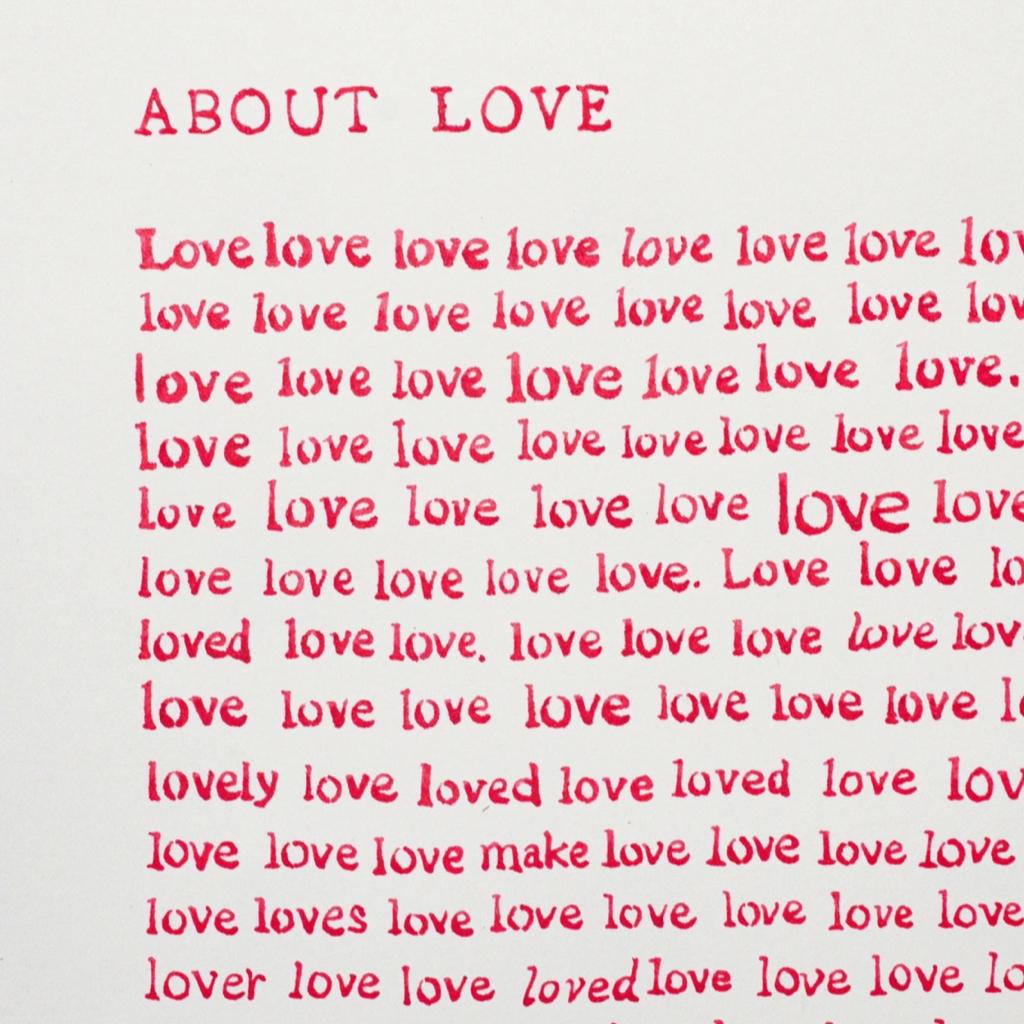 ABOUT LOVE
Love love love love love love love lov
love love love love love love love lov
love love love love love love love.
Love love love love love love love love
love love love love love love love
love love love love love. Love love lo
loved love love. love love love love lov
love love love love love love love l
lovely love loved love loved love lov
love love love make love love love love
love loves love love love love love love
lover love love loved love love love lo